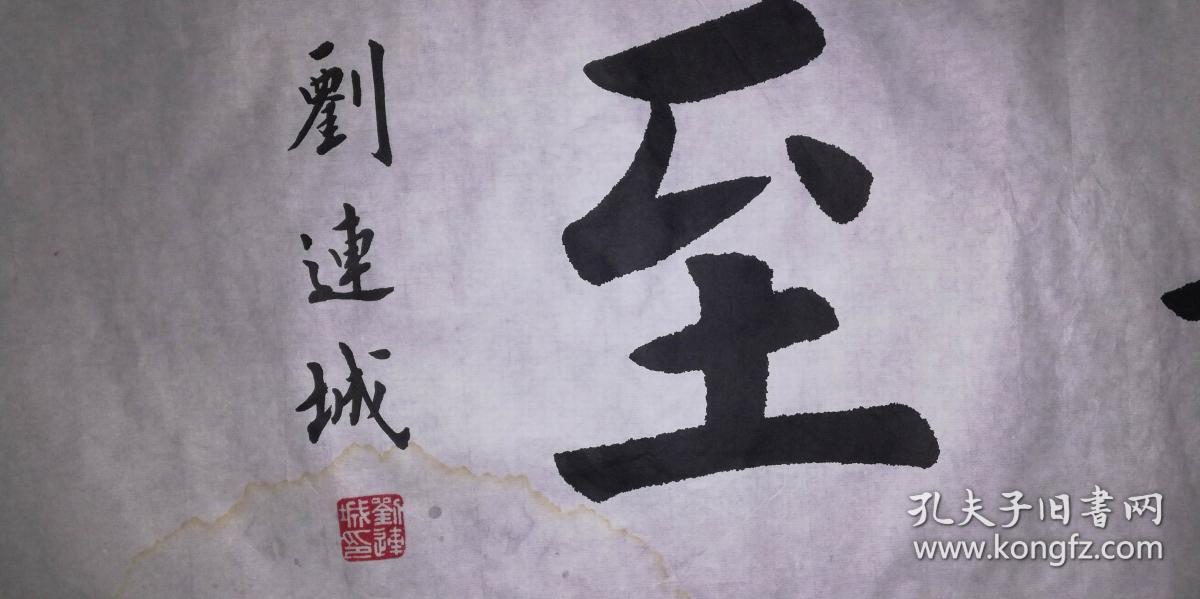 至
劉連城
劉連城印
孔夫子旧书网
www.kongfz.com